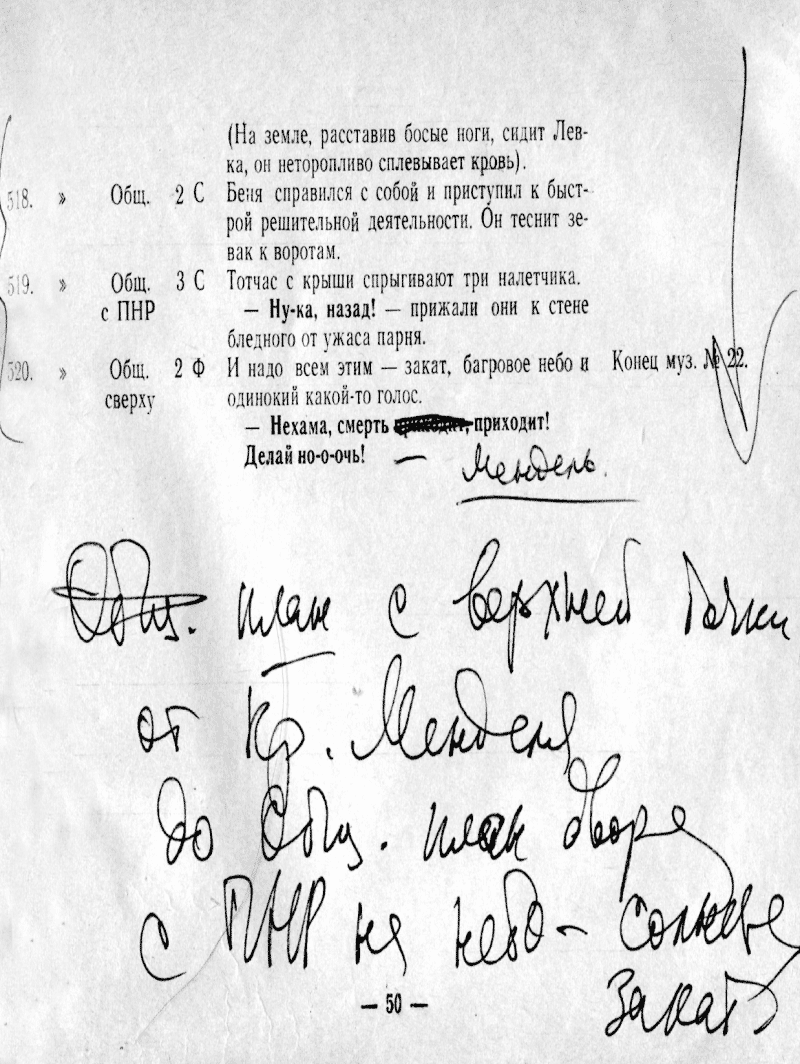 (На земле, расставив босые ноги, сидит Лев-
ка, он неторопливо сплевывает кровь).
518. » Общ. 2 С Беня справился с собой и приступил к быст-
рой решительной деятельности. Он теснит зе-
вак к воротам.
519. » Общ. 3 С Тотчас с крыши спрыгивают три налетчика.
с ПНР — Ну-ка, назад! — прижали они к стене
бледного от ужаса парня.
520. » Общ. 2 Ф И надо всем этим — закат, багровое небо и Конец муз. № 22.
сверху одинокий какой-то голос.
— Нехама, смерть приходит, приходит!
Делай но-о-очь! — Мендель.
Общ. план с верхней точки
от Кр. Менделя
до Общ. план двора
с ПНР на небо – солнце
Закат
— 50 —